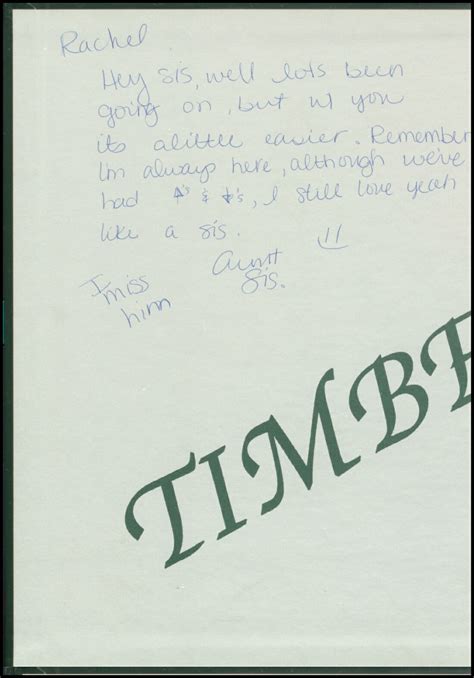 Rachel
Hey sis, well lots been
going on, but w/ you
its alittle easier. Remember
I'm always here, although we've
had ↑'s & ↓'s, I still love yeah
like a sis. 
Aunt
Sis.
I miss
him
TIMBE